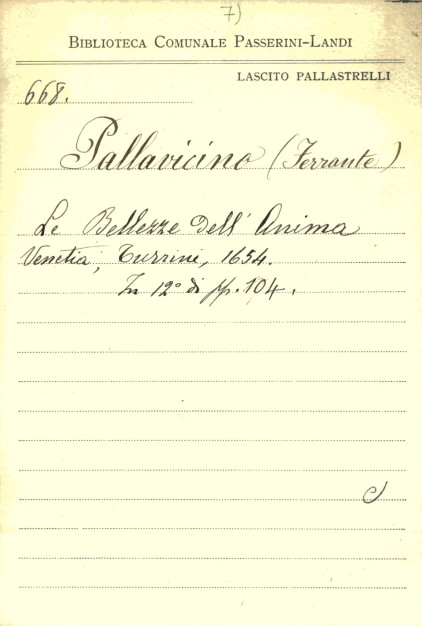 7)
BIBLIOTECA COMUNALE PASSERINI-LANDI
LASCITO PALLASTRELLI
668.
Pallavicino (Ferrante)
Le Bellezze dell' Anima
Venetia, Turrini, 1654.
In 12º di pp. 104.